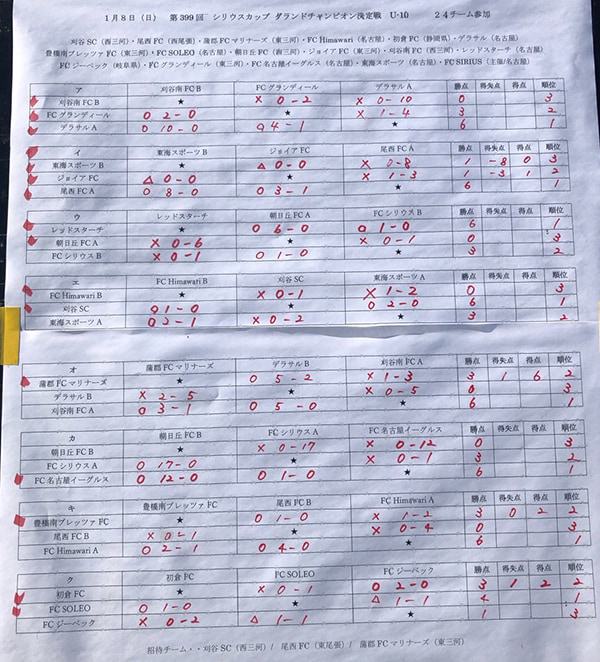 1月8日（日） 第399回 シリウスカップ グランドチャンピオン決定戦 U-10 24チーム参加
刈谷SC（西三河）・尾西FC（西尾張）・蒲郡FCマリナーズ（東三河）・FC Himawari（名古屋）・初倉FC（静岡県）・デラサル（名古屋）
豊橋南プレッツァFC（東三河）・FC SOLEO（名古屋）・朝日丘FC（西三河）・ジョイアFC（東三河）・刈谷南FC（西三河）・レッドスターチ（名古屋）
FCジーベック（岐阜県）・FCグランディール（東三河）・FC名古屋イーグルス（名古屋）・東海スポーツ（名古屋）・FC SIRIUS（主催/名古屋）
ア 刈谷南FC B FCグランディール デラサルA 勝点 得失点 得点 順位
刈谷南FC B ★ × 0-2 × 0-10 0 3
FCグランディール ○ 2-0 ★ × 1-4 3 2
デラサルA ○ 10-0 ○ 4-1 ★ 6 1
イ 東海スポーツB ジョイアFC 尾西FC A 勝点 得失点 得点 順位
東海スポーツB ★ △ 0-0 × 0-8 1 -8 0 3
ジョイアFC △ 0-0 ★ × 1-3 1 -3 1 2
尾西FC A ○ 8-0 ○ 3-1 ★ 6 1
ウ レッドスターチ 朝日丘FC A FCシリウスB 勝点 得失点 得点 順位
レッドスターチ ★ ○ 6-0 ○ 1-0 6 1
朝日丘FC A × 0-6 ★ × 0-1 0 3
FCシリウスB × 0-1 ○ 1-0 ★ 3 2
エ FC Himawari B 刈谷SC 東海スポーツA 勝点 得失点 得点 順位
FC Himawari B ★ × 0-1 × 1-2 0 3
刈谷SC ○ 1-0 ★ ○ 2-0 6 1
東海スポーツA ○ 2-1 × 0-2 ★ 3 2
オ 蒲郡FCマリナーズ デラサルB 刈谷南FC A 勝点 得失点 得点 順位
蒲郡FCマリナーズ ★ ○ 5-2 × 1-3 3 1 6 2
デラサルB × 2-5 ★ × 0-5 0 3
刈谷南FC A ○ 3-1 ○ 5-0 ★ 6 1
カ 朝日丘FC B FCシリウスA FC名古屋イーグルス 勝点 得失点 得点 順位
朝日丘FC B ★ × 0-17 × 0-12 0 3
FCシリウスA ○ 17-0 ★ × 0-1 3 2
FC名古屋イーグルス ○ 12-0 ○ 1-0 ★ 6 1
キ 豊橋南プレッツァFC 尾西FC B FC Himawari A 勝点 得失点 得点 順位
豊橋南プレッツァFC ★ ○ 1-0 × 1-2 3 0 2 2
尾西FC B × 0-1 ★ × 0-4 0 3
FC Himawari A ○ 2-1 ○ 4-0 ★ 6 1
ク 初倉FC FC SOLEO FCジーベック 勝点 得失点 得点 順位
初倉FC ★ × 0-1 ○ 2-0 3 1 2 2
FC SOLEO ○ 1-0 ★ △ 1-1 4 1
FCジーベック × 0-2 △ 1-1 ★ 1 3
招待チーム・・刈谷SC（西三河）/ 尾西FC（東尾張）/ 蒲郡FCマリナーズ（東三河）